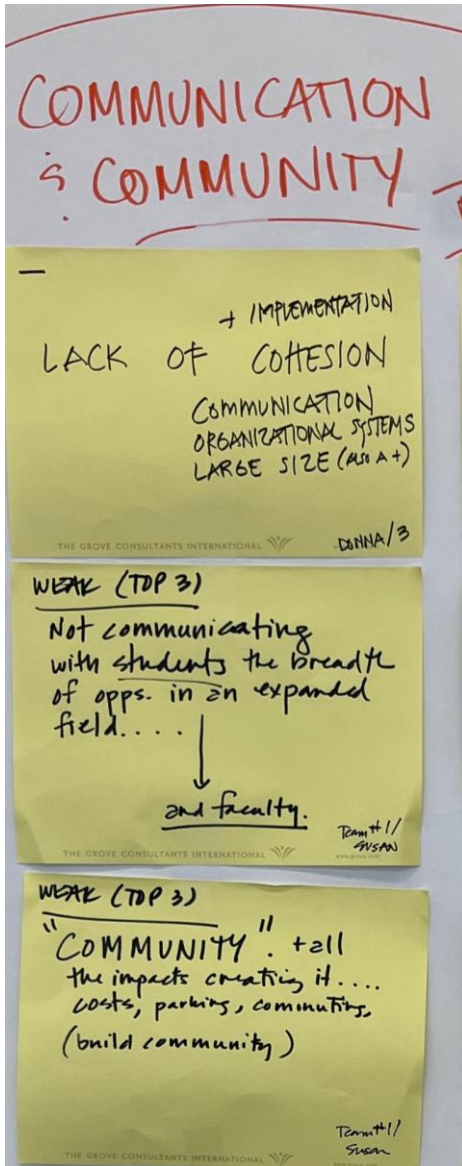 COMMUNICATION
& COMMUNITY
—
+ IMPLEMENTATION
LACK OF COHESION
COMMUNICATION
ORGANIZATIONAL SYSTEMS
LARGE SIZE (also A +)
DONNA/3
THE GROVE CONSULTANTS INTERNATIONAL
WEAK (TOP 3)
Not communicating
with students the breadth
of opps. in an expanded
field....
and faculty.
Team #1/
SUSAN
THE GROVE CONSULTANTS INTERNATIONAL
www.grove.com
WEAK (TOP 3)
"COMMUNITY". + all
the impacts creating it....
costs, parking, commuting,
(build community)
Team #1/
Susan
THE GROVE CONSULTANTS INTERNATIONAL